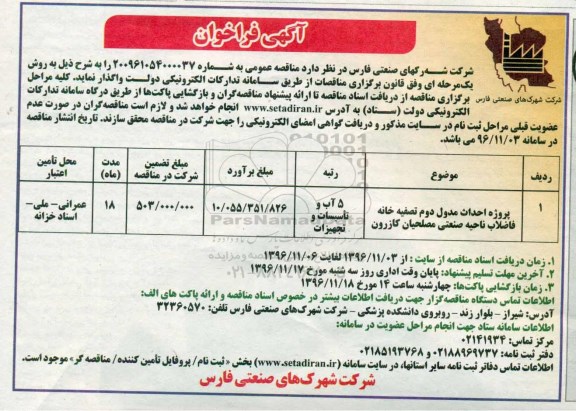 آگهی فراخوان
شرکت شهرک‌های صنعتی فارس
شرکت شهرکهای صنعتی فارس در نظر دارد مناقصه عمومی به شماره ۲۰۰۹۶۱۰۵۴۰۰۰۰۳۷ را به شرح ذیل به روش
یک‌مرحله ای وفق قانون برگزاری مناقصات از طریق سامانه تدارکات الکترونیکی دولت واگذار نماید. کلیه مراحل
برگزاری مناقصه از دریافت اسناد مناقصه تا ارائه پیشنهاد مناقصه‌گران و بازگشایی پاکت‌ها از طریق درگاه سامانه تدارکات
الکترونیکی دولت (ستاد) به آدرس www.setadiran.ir انجام خواهد شد و لازم است مناقصه‌گران در صورت عدم
عضویت قبلی مراحل ثبت نام در سایت مذکور و دریافت گواهی امضای الکترونیکی را جهت شرکت در مناقصه محقق سازند. تاریخ انتشار مناقصه
در سامانه ۹۶/۱۱/۰۳ می باشد.
ردیف موضوع رتبه مبلغ برآورد مبلغ تضمین شرکت در مناقصه مدت (ماه) محل تأمین اعتبار
۱ پروژه احداث مدول دوم تصفیه خانه فاضلاب ناحیه صنعتی مصلحیان کازرون ۵ آب و تأسیسات و تجهیزات ۱۰/۰۵۵/۳۵۱/۸۲۶ ۵۰۳/۰۰۰/۰۰۰ ۱۸ عمرانی- ملی- اسناد خزانه
۱. زمان دریافت اسناد مناقصه از سایت : از ۱۳۹۶/۱۱/۰۳ لغایت ۱۳۹۶/۱۱/۰۶
۲. آخرین مهلت تسلیم پیشنهاد: پایان وقت اداری روز سه شنبه مورخ ۱۳۹۶/۱۱/۱۷
۳. زمان بازگشایی پاکت‌ها: چهارشنبه ساعت ۱۴ مورخ ۱۳۹۶/۱۱/۱۸
اطلاعات تماس دستگاه مناقصه گزار جهت دریافت اطلاعات بیشتر در خصوص اسناد مناقصه و ارائه پاکت های الف:
آدرس: شیراز - بلوار زند - روبروی دانشکده پزشکی - شرکت شهرک‌های صنعتی فارس تلفن: ۳۲۳۶۰۵۷۰
اطلاعات سامانه ستاد جهت انجام مراحل عضویت در سامانه:
مرکز تماس: ۰۲۱۴۱۹۳۴
دفتر ثبت نامه: ۰۲۱۸۸۹۶۹۷۳۷ و ۰۲۱۸۵۱۹۳۷۶۸
اطلاعات تماس دفاتر ثبت نامه سایر استانها، در سایت سامانه (www.setadiran.ir) بخش «ثبت نام/ پروفایل تأمین کننده/ مناقصه گر» موجود است.
شرکت شهرک‌های صنعتی فارس